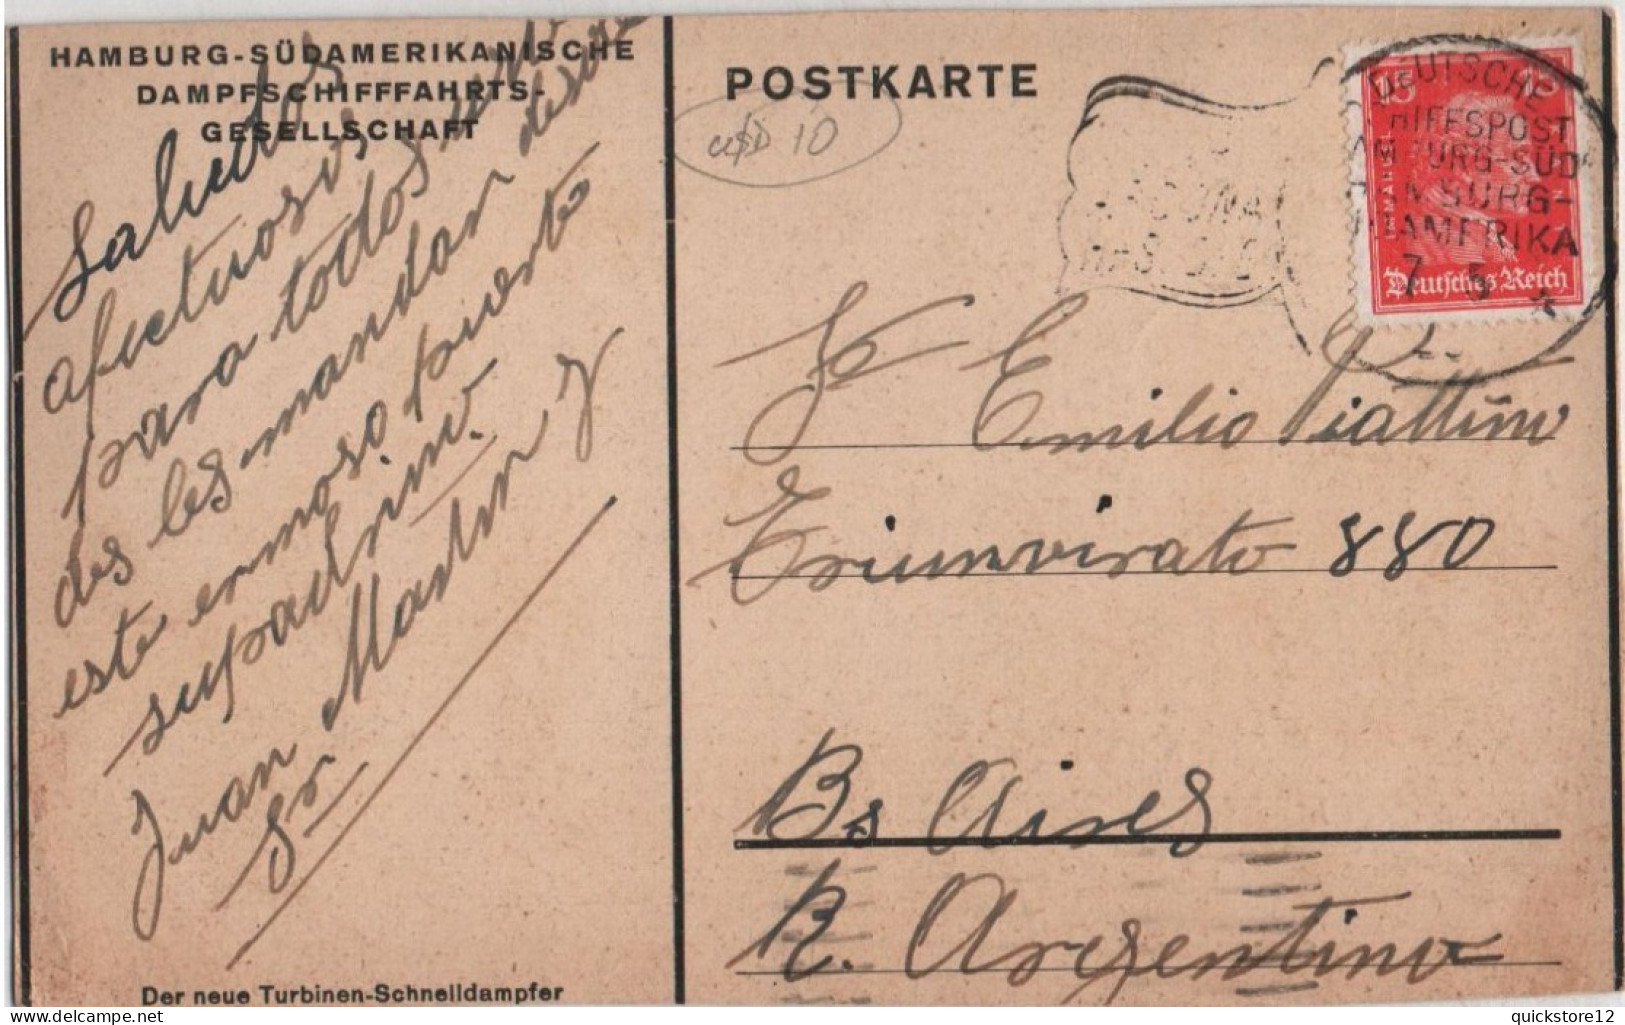 HAMBURG-SÜDAMERIKANISCHE
DAMPFSCHIFFFAHRTS-
GESELLSCHAFT
Saludos
afectuosos,
para todos
des les mandan desde
este ermoso puerto
su padrino.
Juan Martin
Sr
Der neue Turbinen-Schnelldampfer
POSTKARTE
USD 10
DEUTSCHE
SCHIFFSPOST
HAMBURG-SÜD
HAMBURG-
SÜDAMERIKA
7 5
15 15
Deutsches Reich
Sr Emilio Piattino
Triunvirato 880
Bs Aires
R. Argentina
delcampe.net
quickstore12